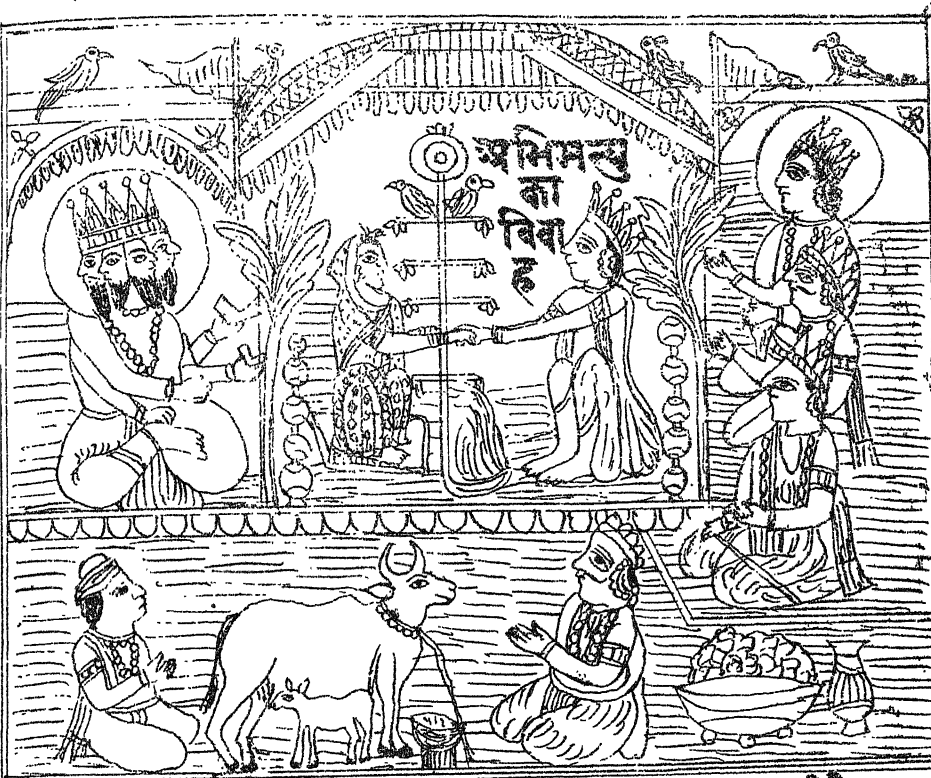 अभिमन्यु
का
विवा
ह